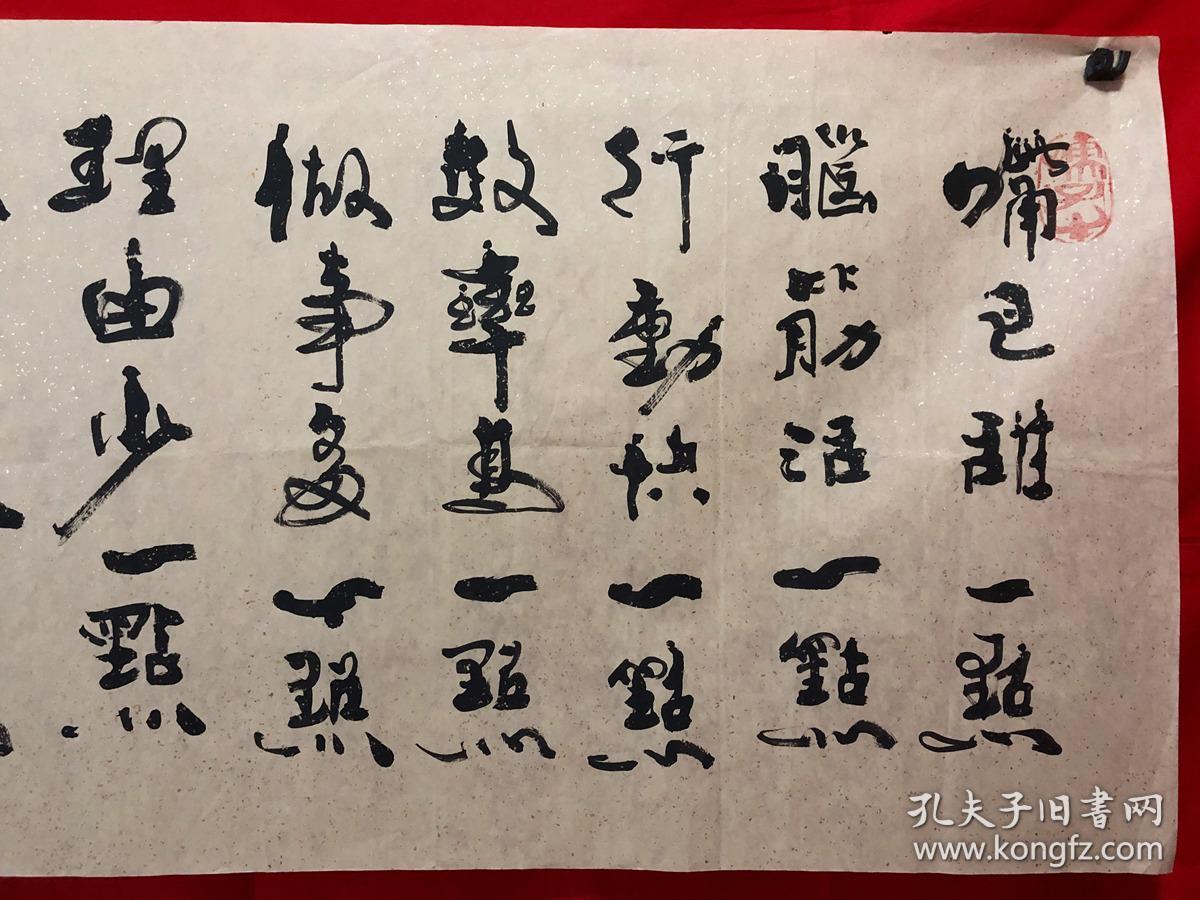 嘴巴甜一點
腦筋活一點
行動快一點
效率高一點
做事多一點
理由少一點
孔夫子旧书网
www.kongfz.com